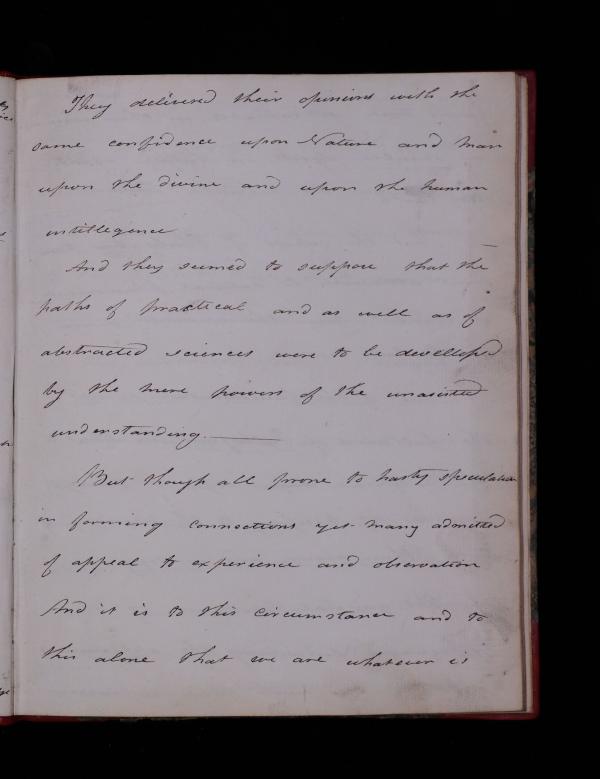 They delivered their opinions with the
same confidence upon Nature and man
upon the divine and upon the human
intillegence
And they seemed to suppose that the
paths of practical and as well as of
abstracted sciences were to be develloped
by the mere powers of the unasisted
understanding.
But though all prone to hasty speculation
in forming connections yet many admitted
of appeal to experience and observation
And it is to this circumstance and to
this alone that we are whatever is